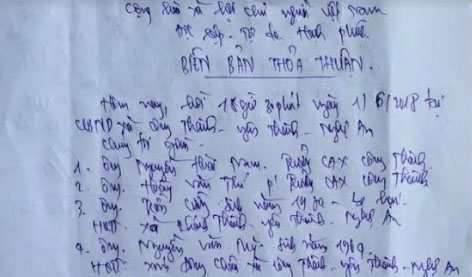 Cộng hòa xã hội chủ nghĩa Việt Nam
Độc lập - Tự do - Hạnh phúc
BIÊN BẢN THỎA THUẬN.
Hôm nay, hồi 18 giờ 30 phút ngày 1/6/2018 tại
UBND xã Công Thành - Yên Thành - Nghệ An
Chúng tôi gồm:
1. Ông Nguyễn Nam. Trưởng CAX Công Thành
2. Ông. Hoàng Văn Thư P Trưởng CAX Công Thành
3. Ông. sinh năm 1970 -
HKTT xã Khánh Thành - Yên Thành - Nghệ An
4. Ông. Nguyễn Văn Mỹ - sinh năm 1969
HKTT xóm xã Công Thành - Yên Thành - Nghệ An